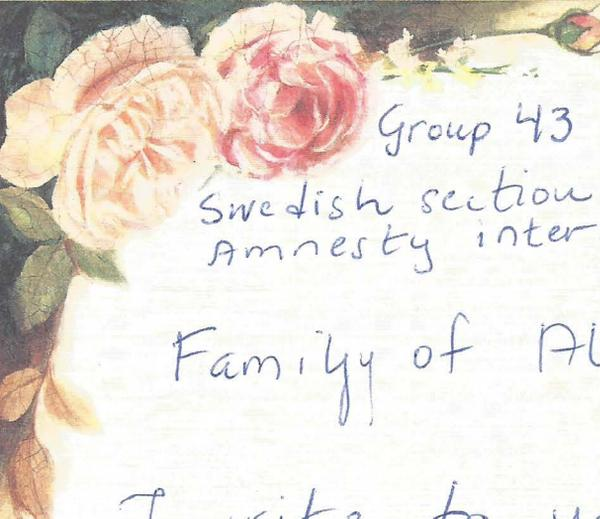 Group 43
Swedish section
Amnesty inter
Family of Al
I write to y